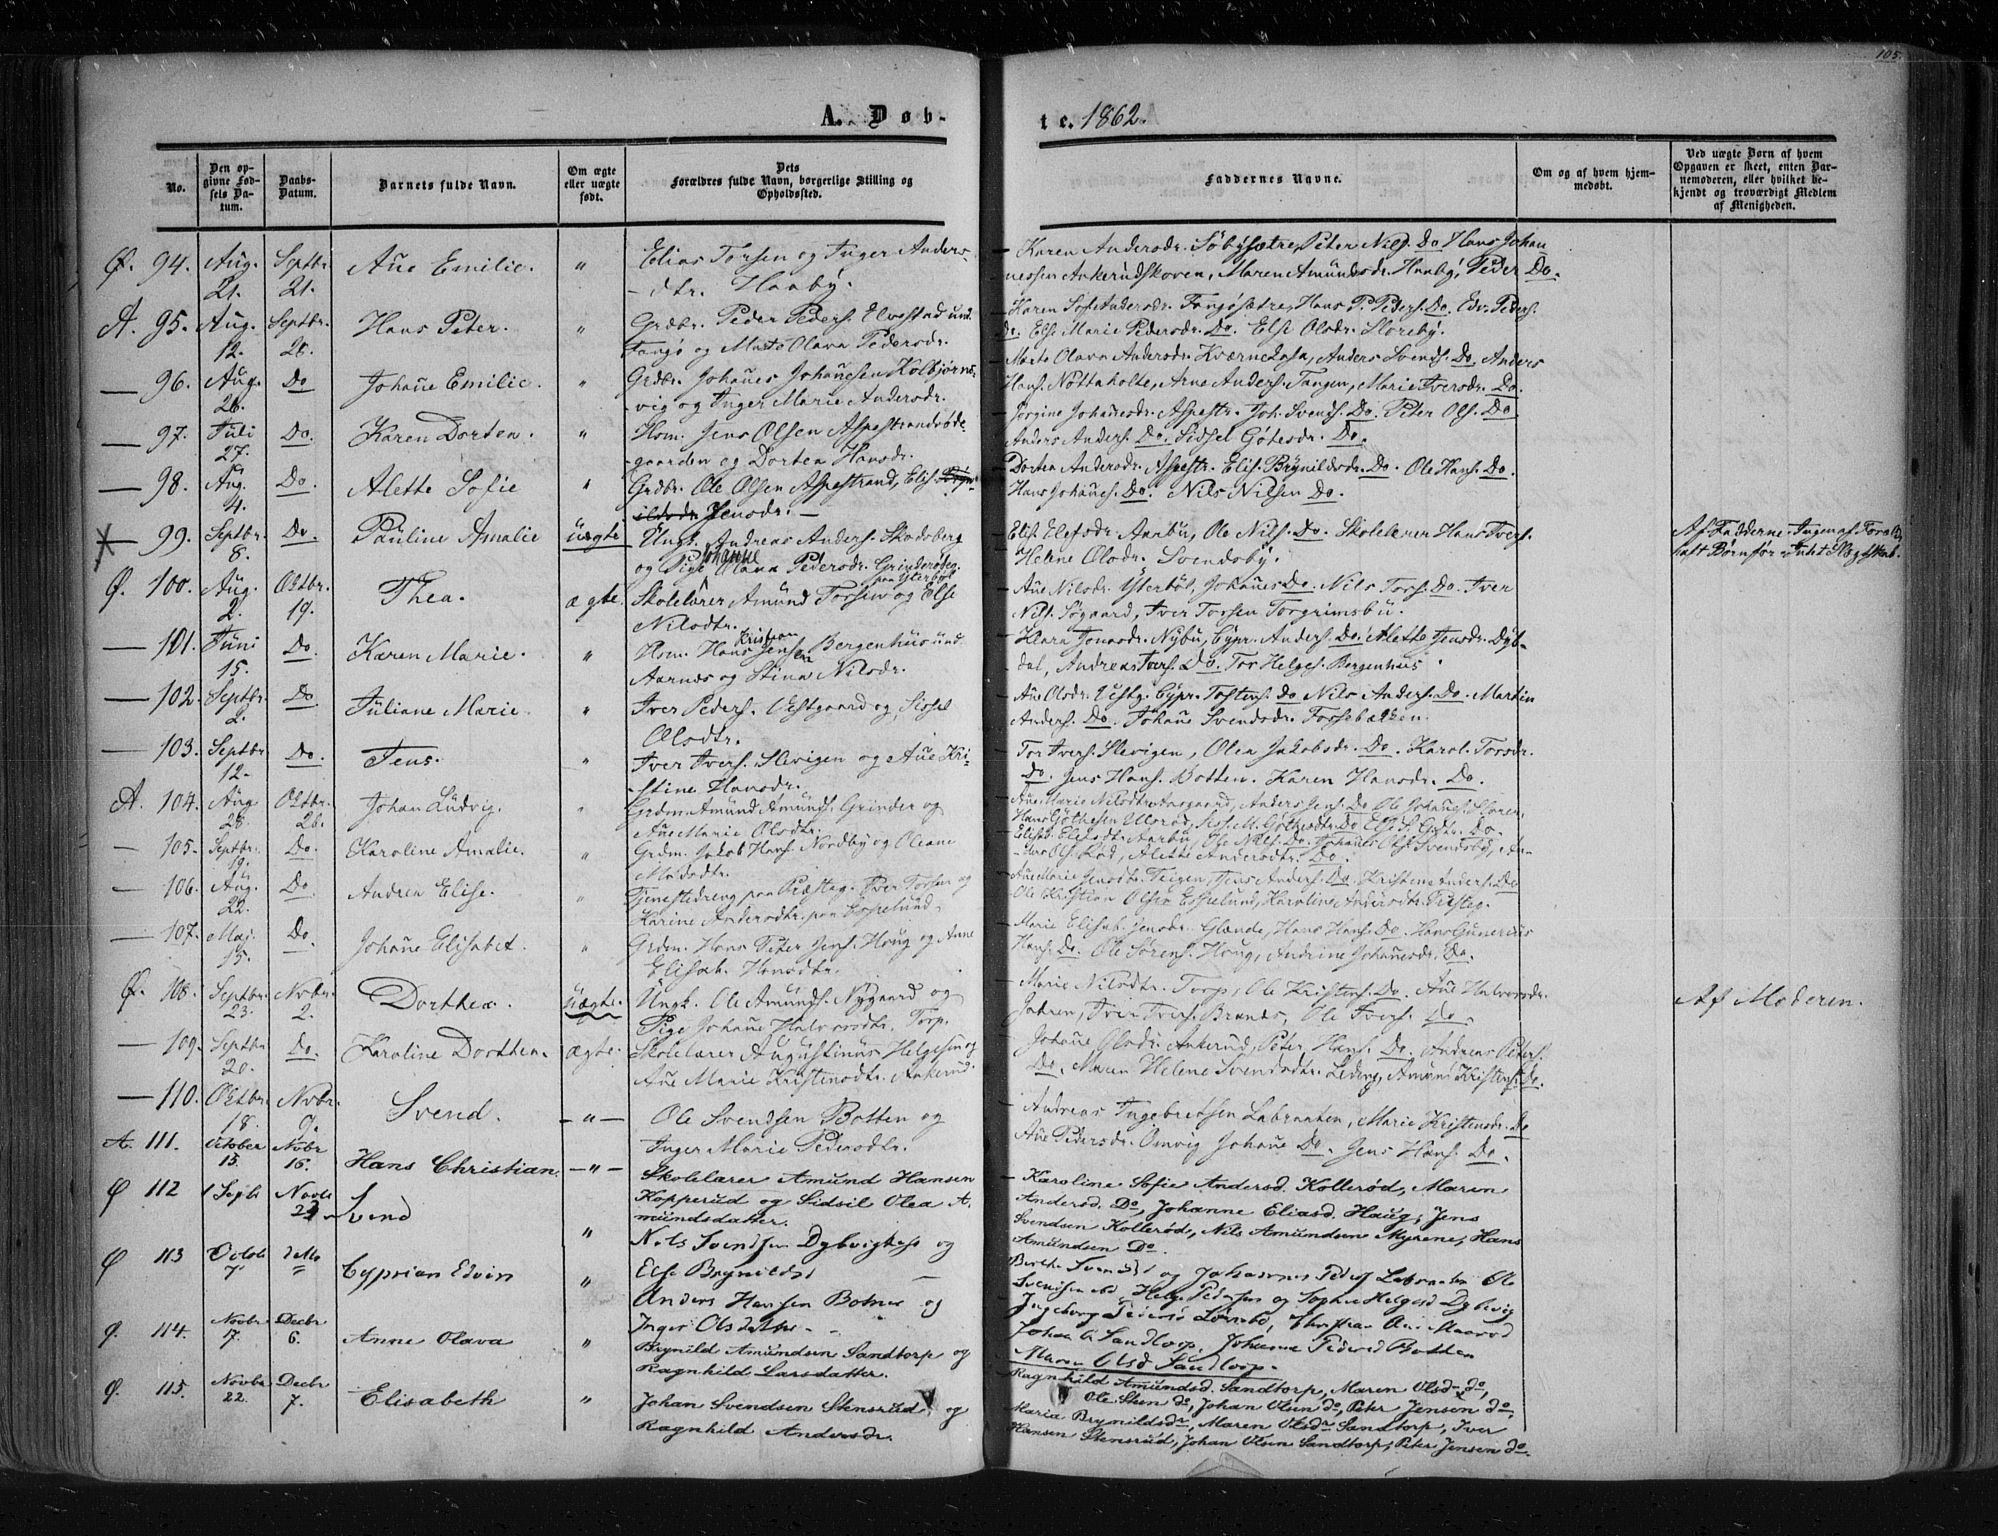 105.
A. Døb-
te. 1862.
No.
Den op-
givne Fød-
sels Da-
tum.
Daabs-
Datum.
Barnets fulde Navn.
Om ægte
eller uægte
født.
Dets
Forældres fulde Navn, borgerlige Stilling og
Opholdssted.
Faddernes Navne.
Om og af hvem hjem-
medøbt.
Ved uægte Børn af hvem
Opgaven er skeet, enten Bar-
nemoderen, eller hvilket be-
kjendt og troværdigt Medlem
af Menigheden.
Ø. 94. Aug. 21. Septbr. 21. Ane Emilie. " Elias Torsen og Inger Anders-
dtr. Haaby.
Karen Andersdr. Søbysætre, Peter Nils. Do Hans Johan
nessen Ankerudskoven, Maren Amundsdr. Haaby, Peder Do.
A. 95. Aug. 12. Septbr. 28. Hans Peter. " Grdbr. Peder Peders. Elvestad und.
Tangø og Marte Olava Pedersdr.
Karen Sofie Andersdr. Tangøsætre, Hans P. Peders. Do. Edv. Peders.
Do. Else Marie Pedersdr. Do. Else Olsdr. Sloreby.
96. Aug. 26. Do Johane Emilie. " Grdbr. Johanes Johanesen Kolbjørns-
vig og Inger Marie Andersdr.
Marte Olava Andersdr. Kværne, Anders Svends. Do. Anders
Hans. Nøttaholte, Arne Anders. Tangen, Marie Iversdr. Do.
97. Juli 27. Do. Karen Dorten. " Hsm. Jens Olsen Aspestrandrøde-
gaarden og Dorten Hansdr.
Jørgine Johanesdr. Aspestr. Joh. Svends. Do. Peter Ols. Do
Anders Anders. Do. Sidsel Gøtesdr. Do.
98. Aug. 4. Do. Alette Sofie " Grdbr. Ole Olsen Aspestrand, Elis. Bryn-
ildsdr. Jensdr. —
Dorten Andersdr. Aspestr. Elis. Brynildsdr. Do. Ole Hans. Do.
Hans Johanes. Do. Nils Nilsen Do.
99. Septbr. 8. Do. Pauline Amalie uægte Ungk. Andreas Anders. Skodsberg
og Pige Johanne Olava Pedersdr. Grinderødeg.
paa Ysterbøl
Elis. Elefsdr. Aarbu, Ole Nils. Do. Skolelærer Hans Ivers.
Helene Olsdr. Svendsby.
Af Fadderne. Ingen af Foræl.
haft Børn før. Intet Slægtskab.
Ø. 100. Aug. 2. Oktbr. 19. Thea. ægte. Skolelærer Amund Torsen og Else
Nilsdtr.
Ane Nilsdr. Ysterbøl, Johanes Do. Nils Tors. Do. Iver
Nils. Søgaard, Iver Torsen Torgrimsbu.
101. Juni 15. Do. Karen Marie. " Hsm. Hans Kristian Jensen Bergenhus und.
Aarnæs og Stina Nilsdr.
Klara Jonasdr. Nybu, Cypr. Anders. Do. Alette Jensdr. Dyb-
dal, Andreas Ivers. Do. Tor Helges. Bergenhus.
102. Septbr. 2. Do Juliane Marie " Iver Peders. Vestgaard og Sissel
Olsdtr.
Ane Olsdr. Vestg. Cypr. Tostens. Do Nils Anders. Do. Martin
Anders. Do. Johane Svendsdr. Fossebækken.
103. Septbr. 12. Do. Jens. " Iver Ivers. Slevigen og Ane Kri-
stine Hansdr.
Tor Ivers. Slevigen, Olea Jakobsdr. Do. Karol. Torsdr.
Do. Jens Hans. Botten. Karen Hansdr. Do.
A. 104. Aug. 28. Oktbr. 26. Johan Ludvig. " Grdm. Amund Amunds. Grinder og
Ane Marie Olsdtr.
Ane Marie Nilsdtr. Aasgaard, Anders Jens. Do Ole Johanes.
105. Septbr. 19. Do. Karoline Amalie. " Grdm. Jakob Hans. Nordby og Oleane
Madsdtr.
Elisb. Elefsdtr. Aarbu, Ole Nils. Do. Johanes Ols. Svendsby, An-
Alette Andersdtr. Do.
106. Aug. 22. Do Andrea Elise. " Tjenestedreng paa Præsteg. Iver Torsen og
Karine Andersdtr. paa Espelund
Ane Marie Jensdtr. Teigen, Jens Anders. Do. Kristens Anders. Do
Ole Kristian Olsen Espelund, Karoline Andersdtr. Præsteg.
107. Mai. 15. Do Johane Elisabet. " Grdm. Hans Peter Jens. Houg og Anne
Elisab. Hansdtr.
Marie Elisab. Jensdr. Glænde, Hans Hans. Do. Hans Gunerius
Hans. Do. Ole Sørens. Houg, Andrine Johanesdr. Do.
Ø. 108. Septbr. 23. Novbr. 2. Dorthea. uægte. Ungk. Ole Amunds. Nygaard og
Pige Johane Halvorsdtr. Torp.
Marie Nilsdtr. Torp, Ole Kristens. Do. Ane Halvorsdr.
Jahren, Iver Ivers. Brands, Ole Ivers. Do.
Af Moderen.
109. Septbr. 20. Do. Karoline Dorthea. ægte. Skolelærer Augustinus Helgesen og
Ane Marie Kristensdtr. Ankerud.
Johane Olsdr. Ankerud, Peter Hans. Do. Andreas Peters.
Do. Maren Helene Svendsdtr. Ledeng, Amund Kristens. Do.
110. Oktbr. 18. Novbr. 9. Svend. — " — Ole Svendsen Botten og
Inger Marie Pedersdtr.
Andreas Ingebretsen Labraaten, Marie Kristensdr. Do
Ane Pedersdr. Omvig Johane Do. Jens Hans. Do.
A. 111. October 15. Novbr 16. Hans Christian. — " — Skolelærer Amund Hansen
Kopperud og Sidsil Olea A-
mundsdatter.
Karoline Sofie Andersd. Kollerød, Maren
Andersd. Do, Johanne Eliasd. Haug, Jens
Svendsen Kollerød, Nils Amundsen Myrene, Hans
Amundsen Do.
Ø 112 1 Septb Novbr 23 Svend " Nels Svendsen Dybvighese og
Else Brynildsd
Berthe Svendsd og Johannes Peders Labraaten Ole
Svendsen Helge Pedersen og Sophie Helgesd Dybvig
Ø 113 Octob 7 do Cyprian Edvin " Anders Hansen Botner og
Inger Olsdatter
Ingeborg
Johan Sandtorp, Johanne Pedersd Botten
Maren Olsd Sandtorp.
Ø. 114. Novbr 17. Decbr 6. Anne Olava " Brynild Amundsen Sandtorp og
Ragnhild Larsdatter.
Ragnhild Amundsd. Sandtorp, Maren Olsd do,
Ole Steen do, Johan Olsen do, Peter Jensen do,
Ø. 115. Novbr 22. Decbr 7. Elisabeth " Johan Svendsen Stensrud og
Ragnhild Andersdr.
Maria Brynildsdr, Maren Olsdr Sandtorp, Iver
Hansen Stensrud, Johan Olsen Sandtorp, Peter Jensen do.